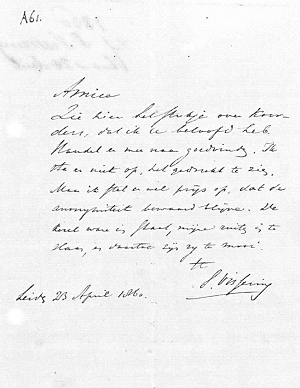 A61.
Amice
Zie hier het stukje over Koor-
ders, dat ik u beloofd heb.
Handel er mee naar goedvinden. Ik
sta er niet op, het gedrukt te zien.
Maar ik stel er wel prijs op, dat de
anonymiteit bewaard blijve. De
kerel ware in staat, mijne ruiten in te
slaan, en daartoe zijn zij te mooi.
tt
S. Vissering
Leid. 23 April 1860.